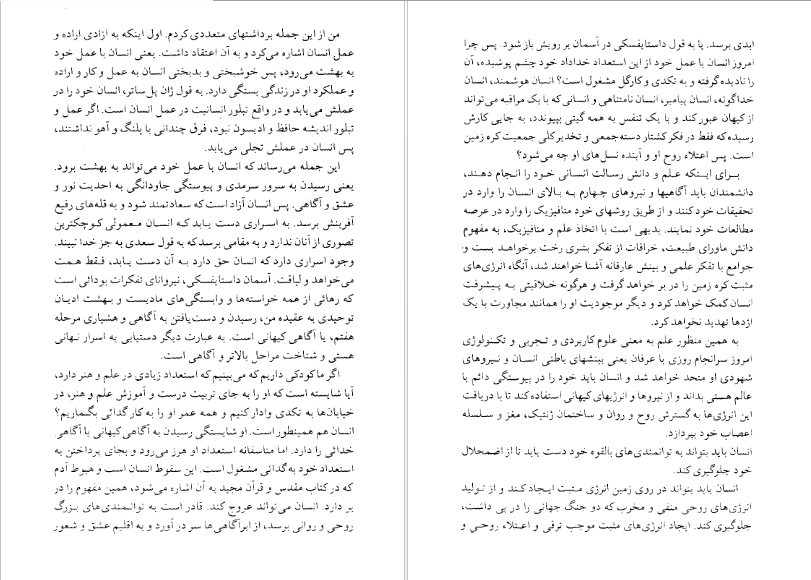 ابدی برسد. یا به قول داستایفسکی در آسمان بر رویش باز شود. پس چرا
امروز انسان با عمل خود از این استعداد خداداد خود چشم پوشیده، آن
را نادیده گرفته و به تکدی و کارگل مشغول است؟ انسان هوشمند، انسان
خداگونه، انسان پیامبر، انسان نامتناهی و انسانی که با یک مراقبه می‌تواند
از کیهان عبور کند و با یک تنفس به همه گیتی بپیوندد، به جایی کارش
رسیده که فقط در فکر کشتار دسته‌جمعی و تخدیر کلی جمعیت کره زمین
است. پس اعتلاء روح او و آینده نسل‌های او چه می‌شود؟
برای اینکه علم و دانش رسالت انسانی خود را انجام دهند،
دانشمندان باید آگاهیها و نیروهای چهارم به بالای انسان را وارد در
تحقیقات خود کنند و از طریق روشهای خود متافیزیک را وارد در عرصه
مطالعات خود نمایند. بدیهی است با اتخاذ علم و متافیزیک، به مفهوم
دانش ماورای طبیعت، خرافات از تفکر بشری رخت برخواهد بست و
جوامع با تفکر علمی و بینش عارفانه آشنا خواهند شد، آنگاه انرژی‌های
مثبت کره زمین را در بر خواهد گرفت و هرگونه خلاقیتی به پیشرفت
انسان کمک خواهد کرد و دیگر موجودیت او را همانند مجاورت با یک
اژدها تهدید نخواهد کرد.
به همین منظور علم به معنی علوم کاربردی و تجربی و تکنولوژی
امروز سرانجام روزی با عرفان یعنی بینشهای باطنی انسان و نیروهای
شهودی او متحد خواهد شد و انسان باید خود را در پیوستگی دائم با
عالم هستی بداند و از نیروها و انرژیهای کیهانی استفاده کند تا با دریافت
این انرژی‌ها به گسترش روح و روان و ساختمان ژنتیک، مغز و سلسله
اعصاب خود بپردازد.
انسان باید بتواند به توانمندی‌های بالقوه خود دست یابد تا از اضمحلال
خود جلوگیری کند.
انسان باید بتواند در روی زمین انرژی مثبت ایجاد کند و از تولید
انرژی‌های روحی منفی و مخرب که دو جنگ جهانی را در پی داشت،
جلوگیری کند. ایجاد انرژی‌های مثبت موجب ترقی و اعتلاء روحی و
من از این جمله برداشتهای متعددی کردم. اول اینکه به ازادی اراده و
عمل انسان اشاره می‌کرد و به آن اعتقاد داشت. یعنی انسان با عمل خود
به بهشت می‌رود، پس خوشبختی و بدبختی انسان به عمل و کار و اراده
و عملکرد او در زندگی بستگی دارد. به قول ژان پل ساتر، انسان خود را در
عملش می‌یابد و در واقع تبلور انسانیت در عمل انسان است. اگر عمل و
تبلور اندیشه حافظ و ادیسون نبود، فرق چندانی با پلنگ و آهو نداشتند،
پس انسان در عملش تجلی می‌یابد.
این جمله می‌رساند که انسان با عمل خود می‌تواند به بهشت برود.
یعنی رسیدن به سرور سرمدی و پیوستگی جاودانگی به احدیت نور و
عشق و آگاهی. پس انسان آزاد است که سعادتمند شود و به قله‌های رفیع
آفرینش برسد. به اسراری دست یابد که انسان معمولی کوچکترین
تصوری از آنان ندارد و به مقامی برسد که به قول سعدی به جز خدا نبیند.
وجود اسراری دارد که انسان حق دارد به آن دست یابد، فقط همت
می‌خواهد و لیاقت. آسمان داستایفسکی، نیروانای تفکرات بودائی است
که رهائی از همه خواسته‌ها و وابستگی‌های مادیست و بهشت ادیان
توحیدی به عقیده من، رسیدن و دست یافتن به آگاهی و هشیاری مرحله
هفتم، یا آگاهی کیهانی است. به عبارت دیگر دستیابی به اسرار نهانی
هستی و شناخت مراحل بالاتر و آگاهی است.
اگر ما کودکی داریم که می‌بینیم که استعداد زیادی در علم و هنر دارد،
آیا شایسته است که او را به جای تربیت درست و آموزش علم و هنر، در
خیابان‌ها به تکدی وادار کنیم و همه عمر او را به کار گدائی بگماریم؟
انسان هم همینطور است. او شایستگی رسیدن به آگاهی کیهانی یا آگاهی
خدائی را دارد. اما متاسفانه استعداد او هرز می‌رود و بجای پرداختن به
استعداد خود به گدائی مشغول است. این سقوط انسان است و هبوط آدم
که در کتاب مقدس و قرآن مجید به آن اشاره می‌شود، همین مفهوم را در
بر دارد. انسان می‌تواند عروج کند. قادر است به توانمندی‌های بزرگ
روحی و روانی برسد، از ابرآگاهی‌ها سر در آورد و به اقلیم عشق و شعور